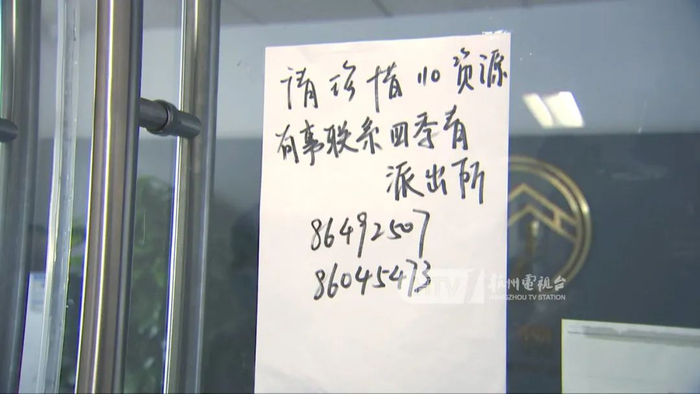 请珍惜110资源
有事联系四季青
派出所
86492507
86045473
杭州電視台
HANGZHOU TV STATION